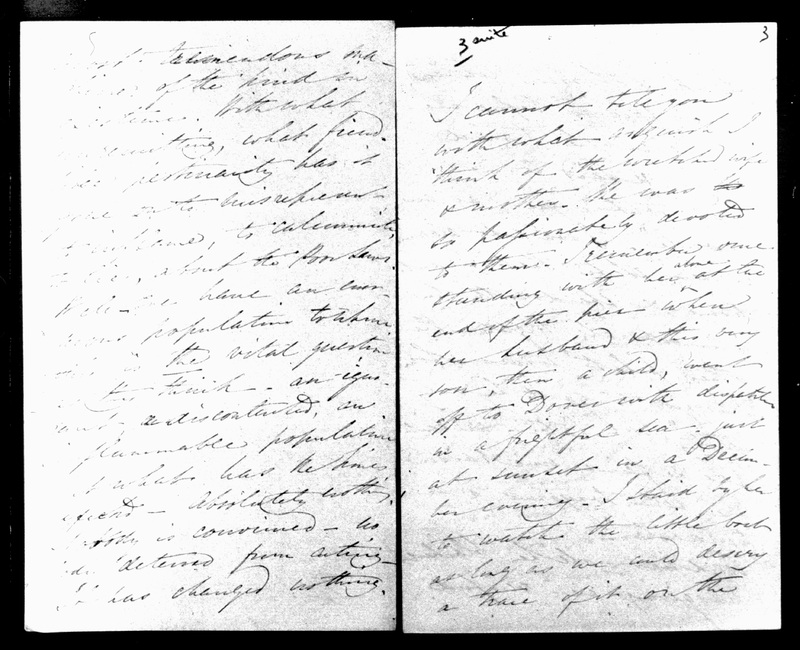 tremendous ma-
of the kind in
With what
what fiend-
pertinacity has it
gone on to misrepresent,
to calumniate,
to lie, about the Poor Laws.
Well - we have an enor-
mous population to whom
this is the vital question
to think - an igno-
rant - a discontented, an
inflammable population
& what has the Times
effected - absolutely nothing.
is convinced - no
deterred from acting -
It has changed nothing.
3 suite
3
I cannot tell you
with what anguish I
think of the wretched wife
& mother. She was
so passionately devoted
to them. I remember once
standing with her alone at the
end of the pier when
her husband & this very
son, then a child, went
off to Dover with dispatches
in a frightful sea - just
at sunset in a Decem-
ber evening - I staid by her
to watch the little boat
as long as we could descry
a trace of it on the